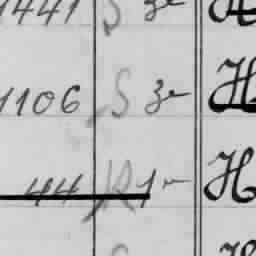 1441 S 3 H
1106 S 3 H
44 R 1 H